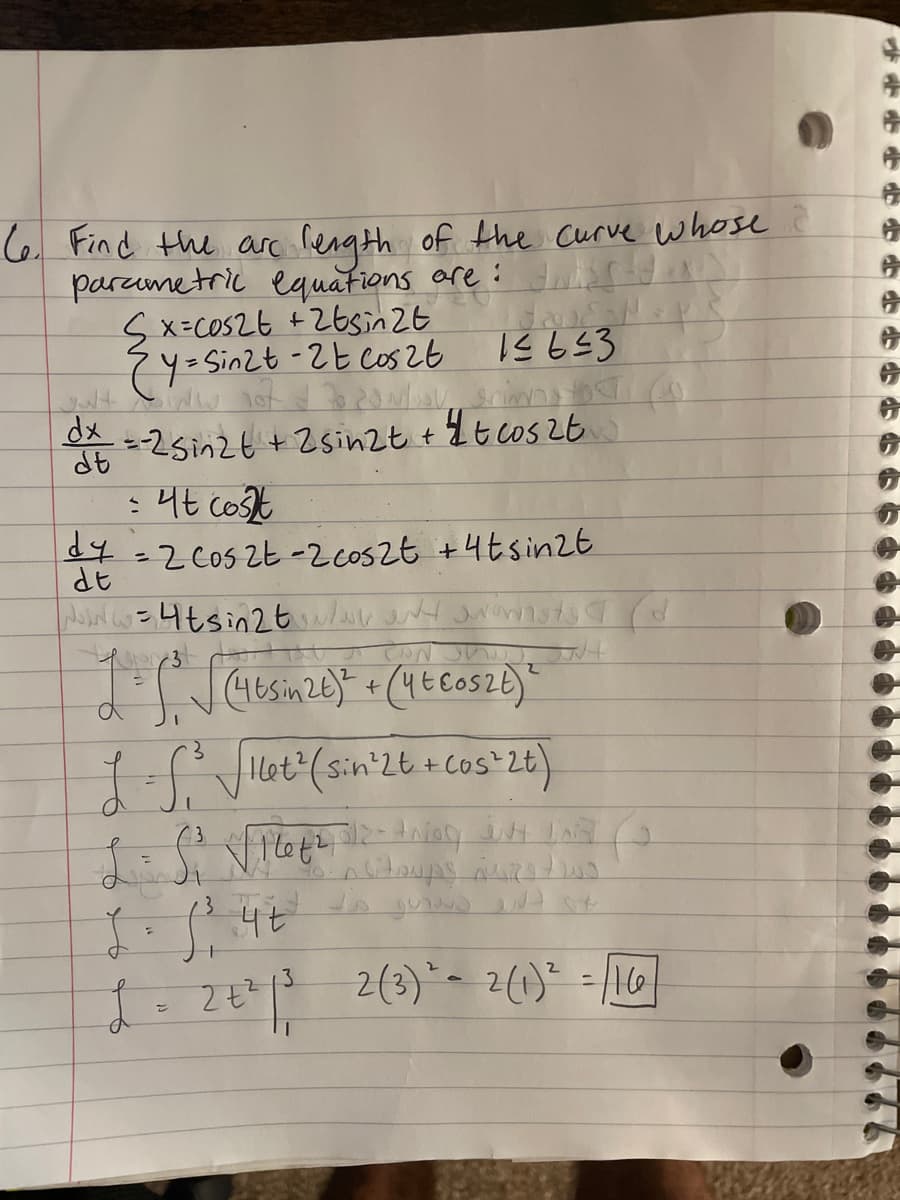 6. Find the arc length of the curve whose
parametric equations are:
{ x=cos2t + 2tsin2t
y=sin2t - 2t cos2t 1≤t≤3
dx/dt = -2sin2t + 2sin2t + 4t cos2t
= 4t cos2t
dy/dt = 2cos2t - 2cos2t + 4tsin2t
= 4tsin2t
L = ∫₁³ √(4tsin2t)² + (4tcos2t)²
L = ∫₁³ √16t²(sin²2t + cos²2t)
L = ∫₁³ √16t²
L = ∫₁³ 4t
L = 2t² |₁³ 2(3)² - 2(1)² = 16